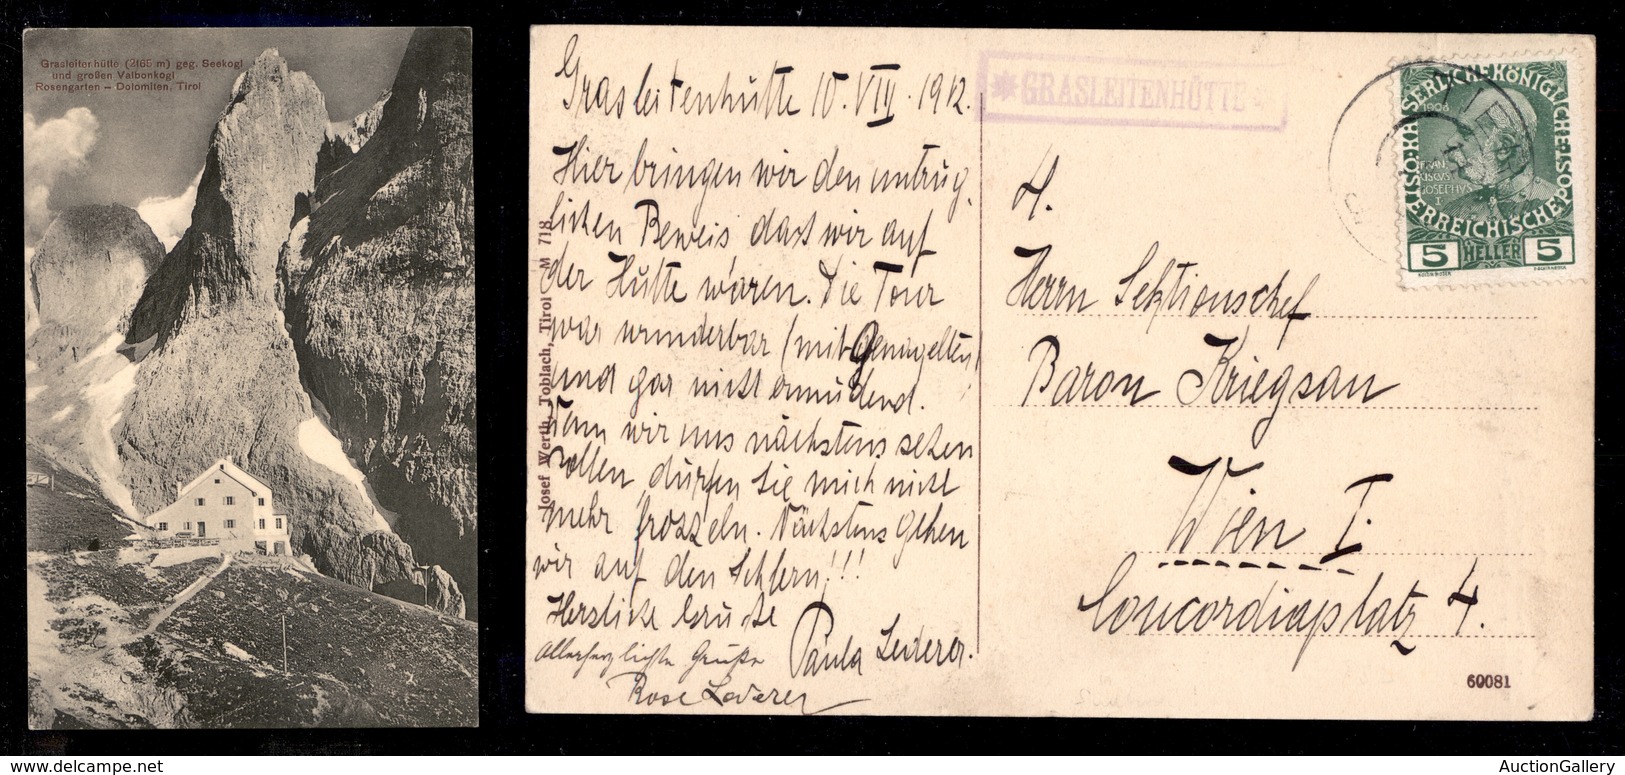 Grasleitenhütte (2165 m) geg. Seekogl
und großen Valbonkogl
Rosengarten – Dolomiten, Tirol
Grasleitenhütte 10. VIII. 1912.
Hier bringen wir den untrüg-
lichen Beweis dass wir auf
der Hütte waren. Die Tour
war wunderbar (mit Genagelten)
und gar nicht ermüdend.
Wenn wir uns nächstens sehen
sollen, dürfen Sie mich nicht
mehr frozzeln. Nächstens gehen
wir auf den Schlern!!!
Herzliche Grüsse
Paula Lederer.
Allerherzlichste Grüße
Rose Lederer
Josef Werth, Toblach, Tirol M 718
GRASLEITENHÜTTE
KAISERLICHE KÖNIGLICHE
ÖSTERREICHISCHE POST
1908
FRAN
CISCVS
IOSEPHVS
I.
5 HELLER 5
Herrn Sektionschef
Baron Kriegsau
Wien I.
Concordiaplatz 4.
60081
AuctionGallery
www.delcampe.net